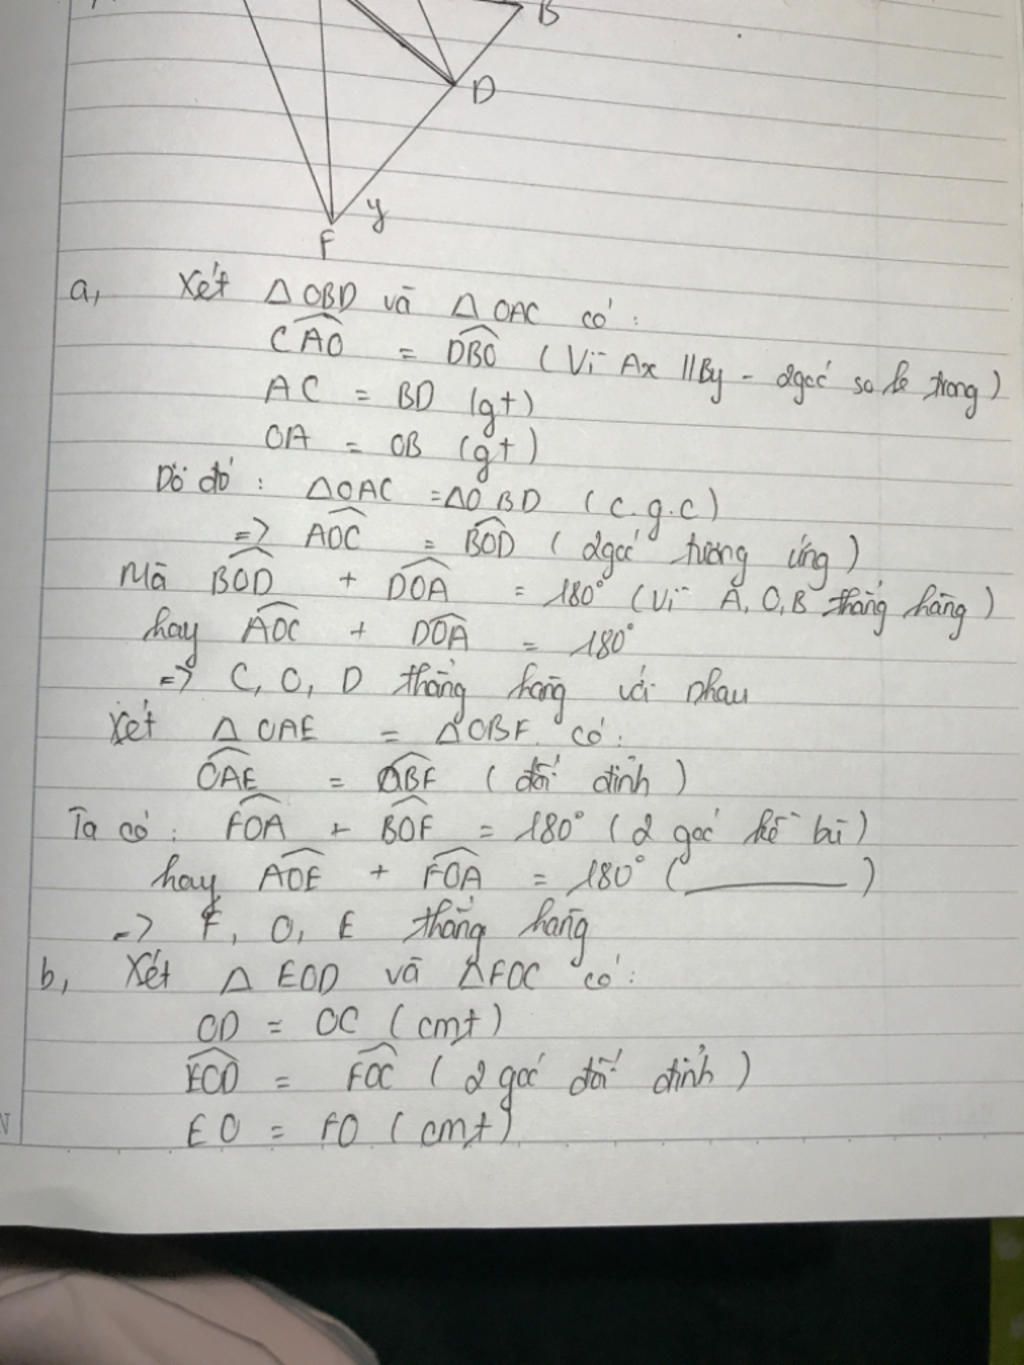 B
D
y
F
a, Xét △OBD và △OAC có:
CAO = DBO (Vì Ax // By - 2 góc so le trong)
AC = BD (gt)
OA = OB (gt)
Dó đó: △OAC = △OBD (c.g.c)
=> AOC = BOD (2 góc tương ứng)
Mà BOD + DOA = 180° (Vì A, O, B thẳng hàng)
hay AOC + DOA = 180°
=> C, O, D thẳng hàng với nhau
Xét △OAE = △OBF có:
OAE = OBF (đối đỉnh)
Ta có: FOA + BOF = 180° (2 góc kề bù)
hay AOE + FOA = 180° (______)
=> F, O, E thẳng hàng
b, Xét △EOD và △FOC có:
OD = OC (cmt)
EOD = FOC (2 góc đối đỉnh)
EO = FO (cmt)